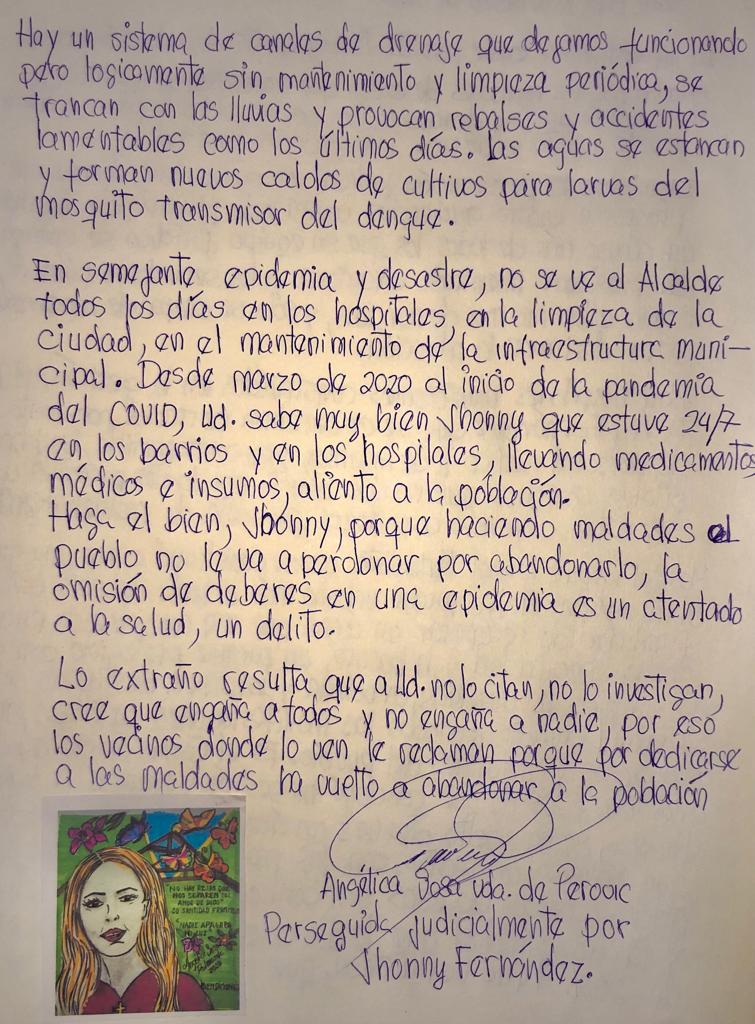 Hay un sistema de canales de drenaje que dejamos funcionando
pero logicamente sin mantenimiento y limpieza periódica, se
trancan con las lluvias y provocan rebalses y accidentes
lamentables como los últimos días. Las aguas se estancan
y forman nuevos caldos de cultivos para larvas del
mosquito transmisor del dengue.
En semejante epidemia y desastre, no se ve al Alcalde
todos los días en los hospitales, en la limpieza de la
ciudad, en el mantenimiento de la infraestructura muni-
cipal. Desde marzo de 2020 al inicio de la pandemia
del COVID, Ud. sabe muy bien Jhonny que estuve 24/7
en los barrios y en los hospitales, llevando medicamentos
médicos e insumos, aliento a la población.
Haga el bien, Jhonny, porque haciendo maldades el
pueblo no le va a perdonar por abandonarlo, la
omisión de deberes en una epidemia es un atentado
a la salud, un delito.
Lo extraño resulta que a Ud. no lo citan, no lo investigan,
cree que engaña a todos y no engaña a nadie, por eso
los vecinos donde lo ven le reclaman porque por dedicarse
a las maldades ha vuelto a abandonar a la población
Angélica Sosa vda. de Perovic
Perseguida judicialmente por
Jhonny Fernández.
"NO HAY REJAS QUE
NOS SEPAREN DEL
AMOR DE DIOS"
SU SANTIDAD FRANCISCO
"NADIE APAGARA
MI LUZ"